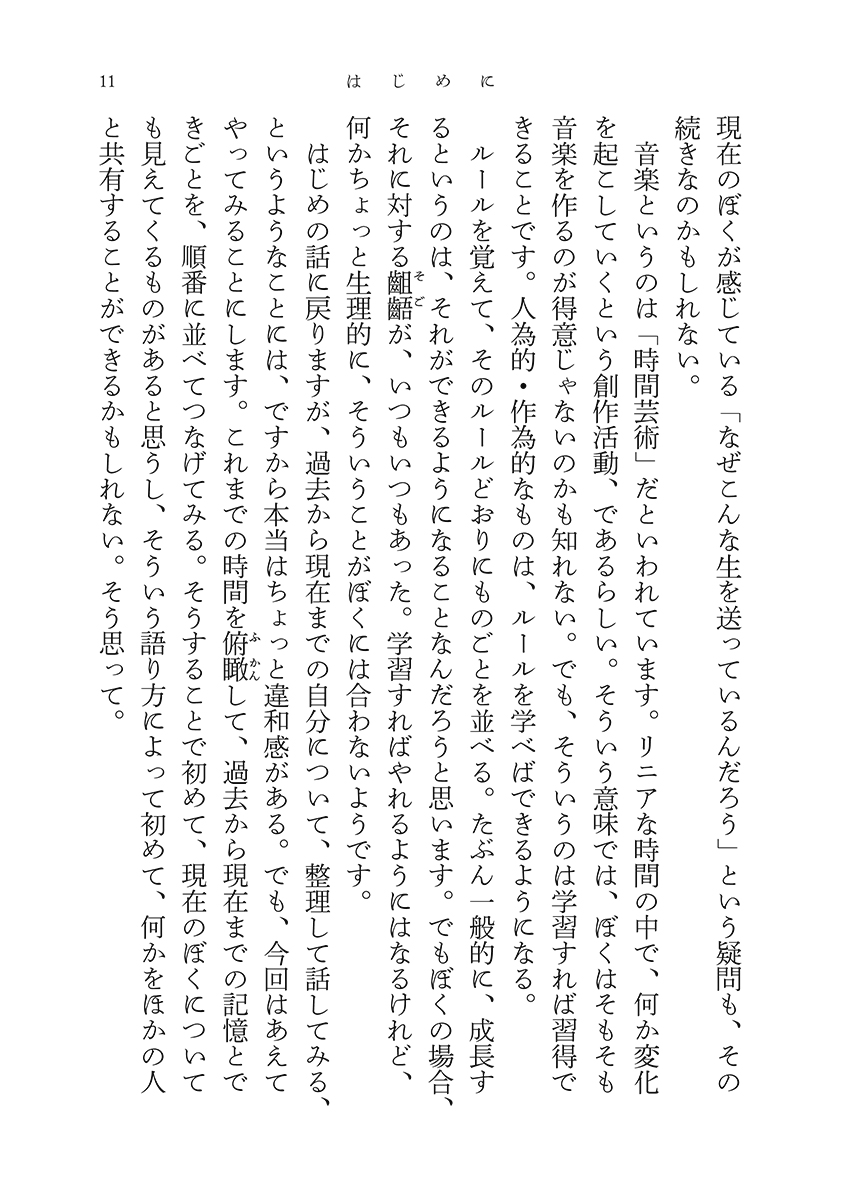 11
はじめに
現在のぼくが感じている「なぜこんな生を送っているんだろう」という疑問も、その
続きなのかもしれない。
音楽というのは「時間芸術」だといわれています。リニアな時間の中で、何か変化
を起こしていくという創作活動、であるらしい。そういう意味では、ぼくはそもそも
音楽を作るのが得意じゃないのかも知れない。でも、そういうのは学習すれば習得で
きることです。人為的・作為的なものは、ルールを学べばできるようになる。
ルールを覚えて、そのルールどおりにものごとを並べる。たぶん一般的に、成長す
るというのは、それができるようになることなんだろうと思います。でもぼくの場合、
それに対する齟齬そごが、いつもいつもあった。学習すればやれるようにはなるけれど、
何かちょっと生理的に、そういうことがぼくには合わないようです。
はじめの話に戻りますが、過去から現在までの自分について、整理して話してみる、
というようなことには、ですから本当はちょっと違和感がある。でも、今回はあえて
やってみることにします。これまでの時間を俯瞰ふかんして、過去から現在までの記憶とで
きごとを、順番に並べてつなげてみる。そうすることで初めて、現在のぼくについて
も見えてくるものがあると思うし、そういう語り方によって初めて、何かをほかの人
と共有することができるかもしれない。そう思って。